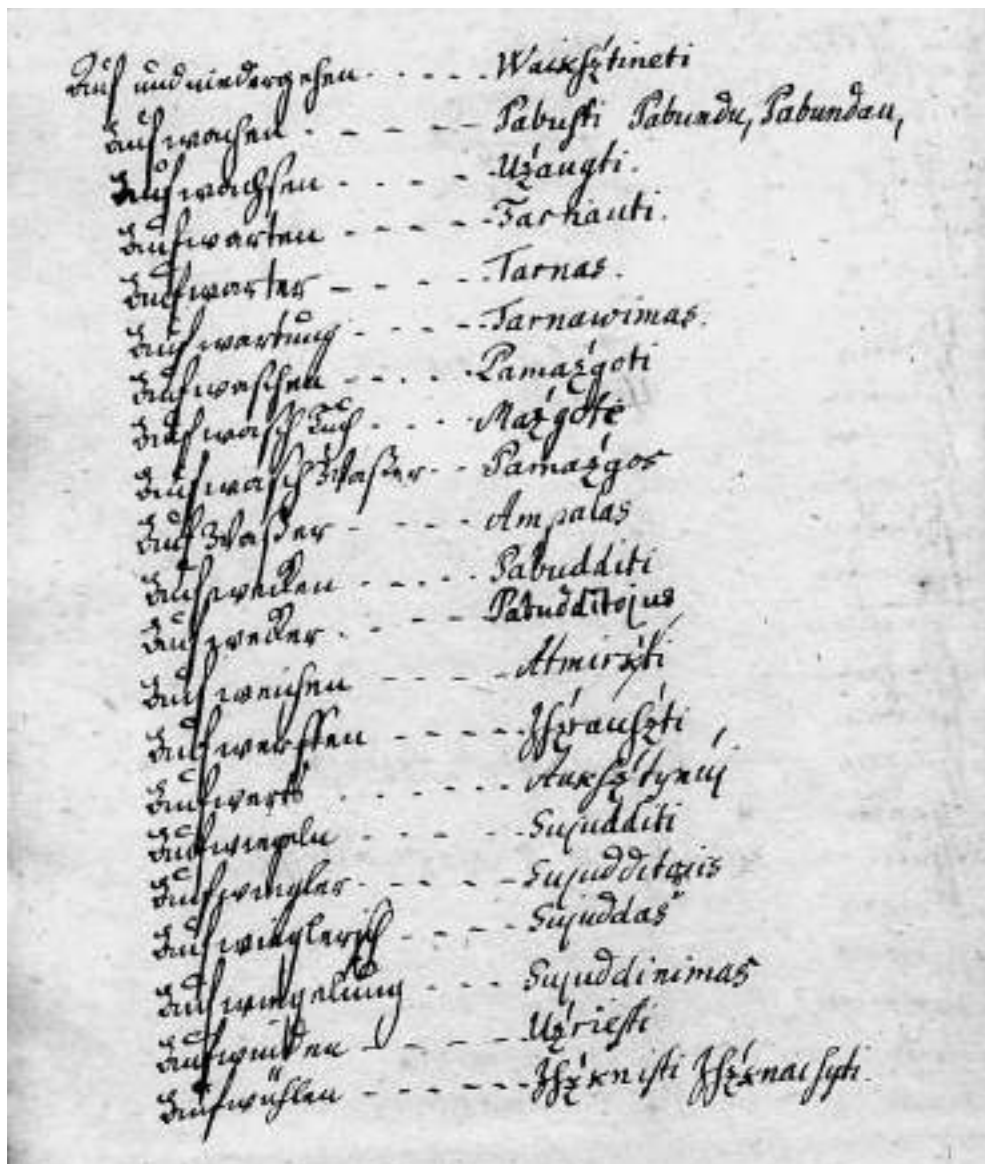 Auf und niedergehen. - - - - Waikſźtineti
Aufwachen - - - - - Pabuſti Pabundu, Pabundau,
Aufwachſen - - - - Użaugti.
Aufwarten - - - - - Tarnauti.
Aufwarter - - - - Tarnas.
Aufwartung - - - - Tarnawimas.
Aufwaſchen - - - - Pamazgoti
Aufwaſch Tuch - - - - Mazgote
Aufwaſch Waſſer - - Pamazgos
Auf Waſſer - - - - Ampalas
Aufwecken - - - - Pabudditi
Aufwecker - - - - Pabudditojus
Aufweichen - - - - - Atmirkti
Aufwerffen - - - - - Iſźrauſźti
Aufwerts - - - - - Aukſźtynuj
Aufwiegeln - - - - Sujudditi
Aufwiegler - - - - - Sujudditojis
Aufwiegleriſch - - - - Sujuddas
Aufwiegelung - - - Sujuddinimas
Aufwinden - - - - Użrieſti
Aufwühlen - - - - - - Iſźkniſti Iſźknaiſyti.